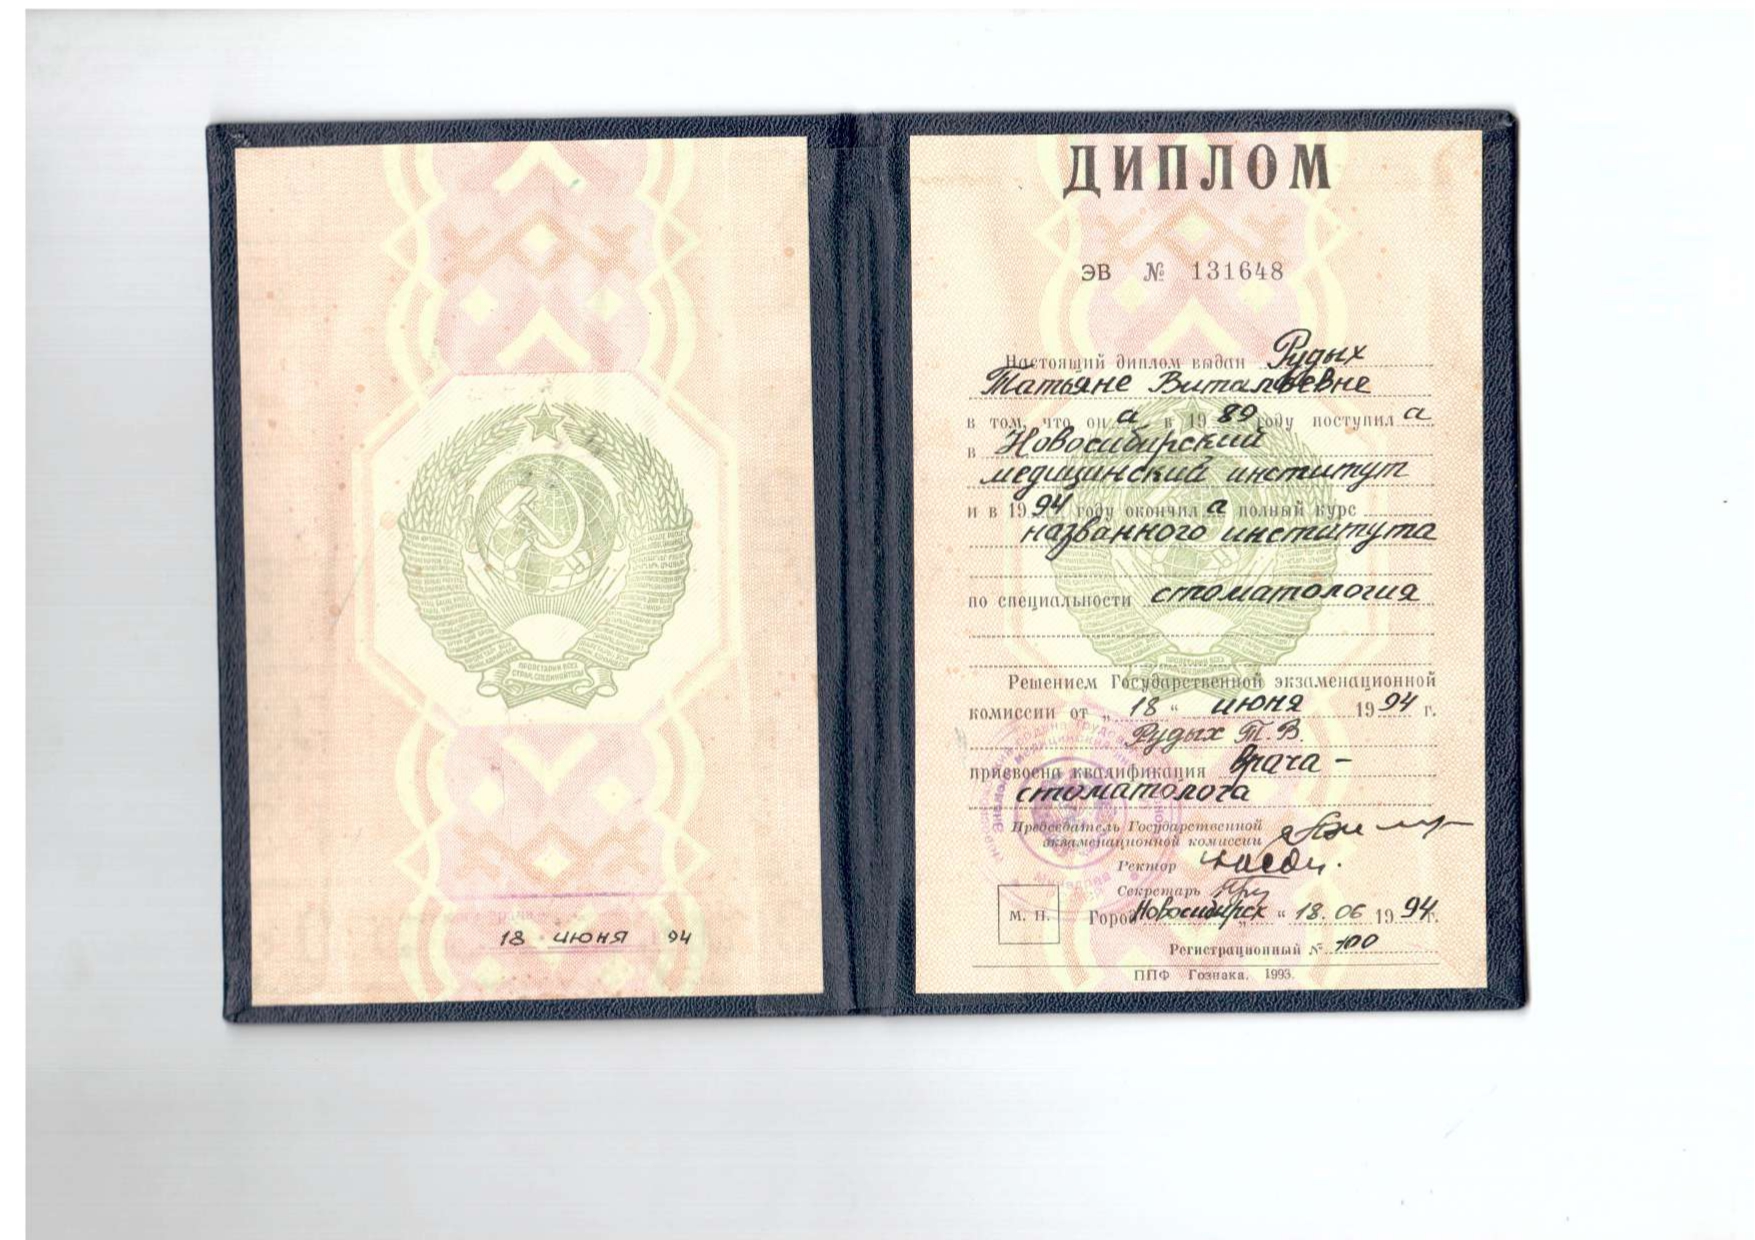 ПРОЛЕТАРИИ ВСЕХ
СТРАН, СОЕДИНЯЙТЕСЬ!
18 июня 94
ДИПЛОМ
ЭВ № 131648
Настоящий диплом выдан Рудых
Татьяне Витальевне
в том, что он а в 19 89 году поступил а
в Новосибирский
медицинский институт
и в 19 94 году окончил а полный курс
названного института
по специальности стоматология
Решением Государственной экзаменационной
комиссии от „ 18 “ июня 19 94 г.
Рудых Т.В.
присвоена квалификация врача -
стоматолога
Председатель Государственной
экзаменационной комиссии
Ректор
Секретарь
М. П.
Город Новосибирск „ “ 18. 06 19 94 г.
Регистрационный № 700
ППФ Гознака. 1993.